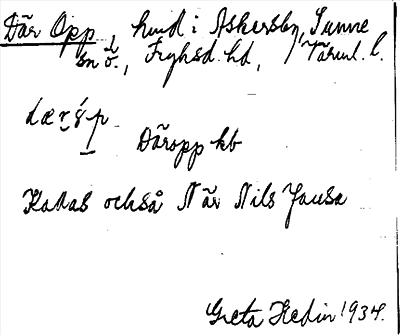 Där Opp, hmd i Askersby, Sunne
sn ö., Fryksd. hd, Värml. l.
Däropp kb
Kallas också När Nils Jansa
Greta Hedin 1934.